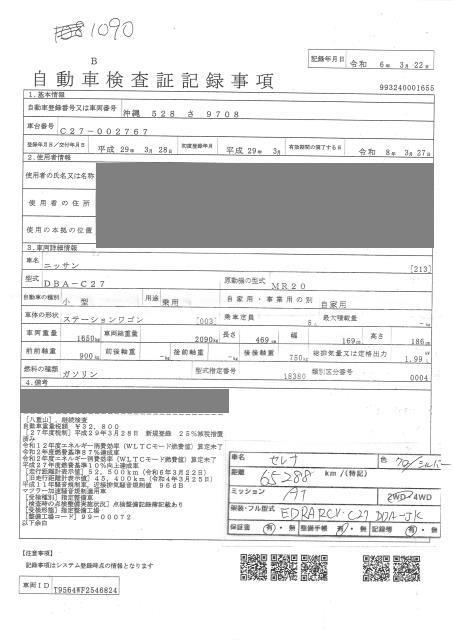 1090
B
自動車検査証記録事項
記録年月日 令和 6年 3月 22日
993240001655
1.基本情報
自動車登録番号又は車両番号 沖縄 528 さ 9708
車台番号 C27-002767
登録年月日/交付年月日 平成 29年 3月 28日 初度登録年月 平成 29年 3月 有効期間の満了する日 令和 8年 3月 27日
2.使用者情報
使用者の氏名又は名称
使用者の住所
使用の本拠の位置
3.車両詳細情報
車名 ニッサン [213]
型式 DBA-C27 原動機の型式 MR20
自動車の種別 小型 用途 乗用 自家用・事業用の別 自家用
車体の形状 ステーションワゴン [003] 乗車定員 最大積載量 -kg
車両重量 1650kg 車両総重量 2090kg 長さ 469cm 幅 169cm 高さ 186cm
前前軸重 900kg 前後軸重 -kg 後前軸重 -kg 後後軸重 750kg 総排気量又は定格出力 1.99
燃料の種類 ガソリン 型式指定番号 18380 類別区分番号 0004
4.備考
[八重山],継続検査
自動車重量税額 ¥32,800
[27年度税制]平成29年3月28日 新規登録 25%減税措置
済み
令和12年度エネルギー消費効率(WLTCモード燃費値)算定未了
令和2年度燃費基準87%達成車
令和2年度エネルギー消費効率(WLTCモード燃費値)算定未了
平成27年度燃費基準10%向上達成車
[走行距離計表示値]52,500km(令和6年3月22日)
[旧走行距離計表示値]45,400km(令和4年3月25日)
平成11年騒音規制車,近接排気騒音規制値 96dB
マフラー加速騒音規制適用車
[受検種別]指定整備車
[検査時の点検整備実施状況]点検整備記録簿記載あり
[受検形態]指定整備工場
[整備工場コード]99-00072
以下余白
車名 セレナ 色 シルバー
距離 65288 km/(特記)
ミッション AT 2WD/4WD
架装・フル型式
保証書 有・無 整備手帳 有・無 記録簿 有・無
【注意事項】
記録事項はシステム登録時点の情報となります
車両ID T9564WF2546824